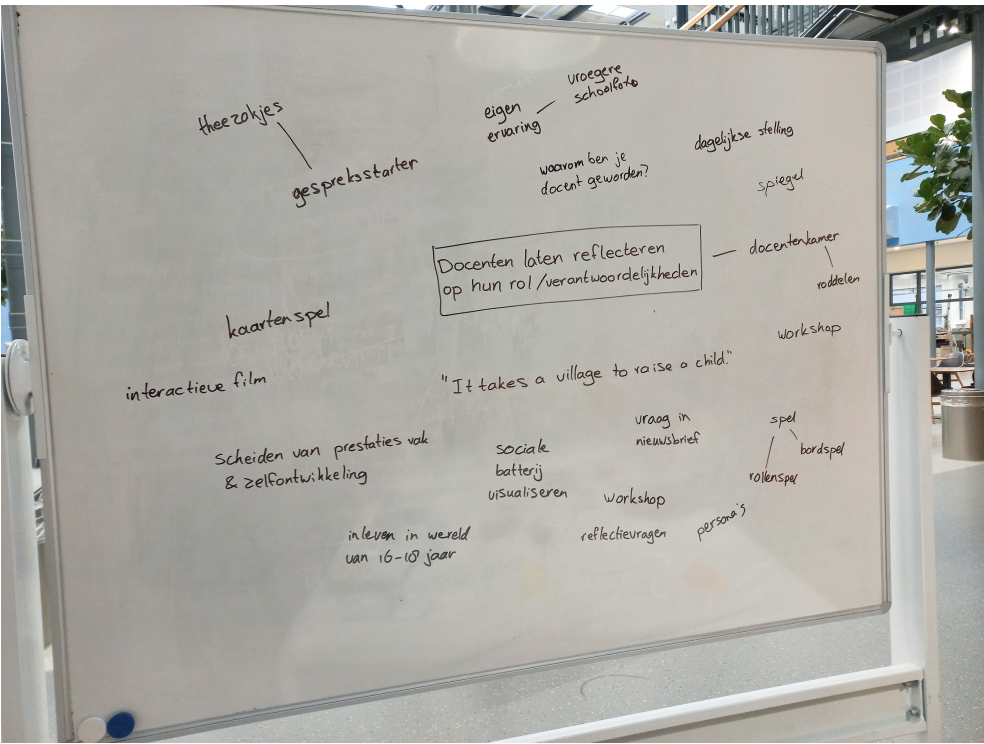 theezakjes
gespreksstarter
eigen
ervaring
vroegere
schoolfoto
waarom ben je
docent geworden?
dagelijkse stelling
spiegel
Docenten laten reflecteren
op hun rol/verantwoordelijkheden
docentenkamer
roddelen
kaartenspel
workshop
interactieve film
"It takes a village to raise a child."
Scheiden van prestaties vak
& zelfontwikkeling
sociale
batterij
visualiseren
vraag in
nieuwsbrief
spel
bordspel
rollenspel
workshop
reflectievragen
persona's
inleven in wereld
van 16-18 jaar